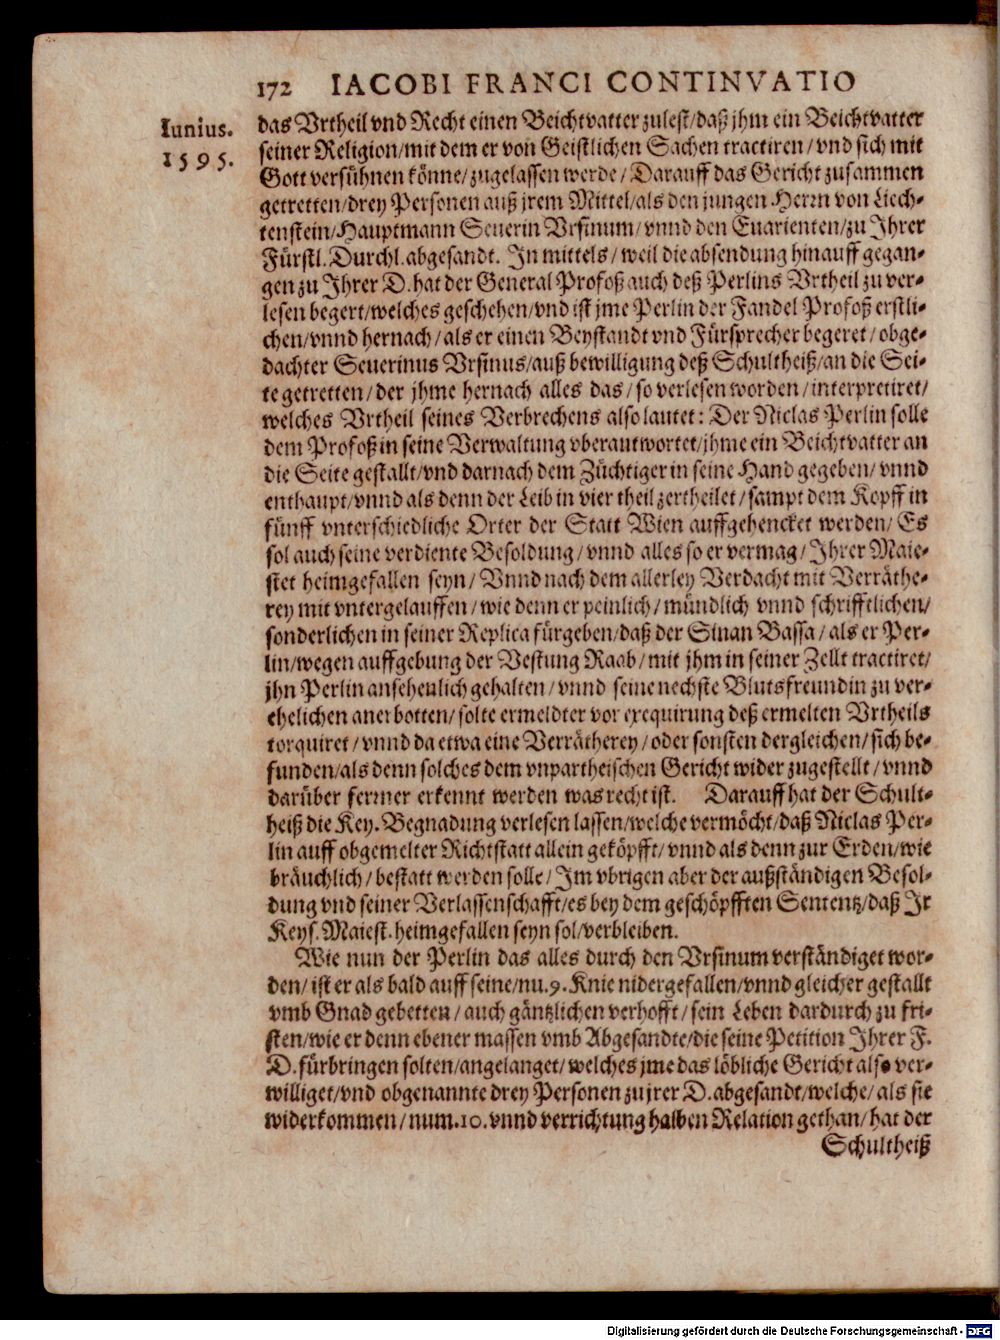 172 IACOBI FRANCI CONTINVATIO
Iunius.
1595.
das Vrtheil vnd Recht einen Beichtvatter zulest/daß jhm ein Beichtvatter
seiner Religion/mit dem er von Geistlichen Sachen tractiren/vnd sich mit
Gott versühnen könne/zugelassen werde/Darauff das Gericht zusammen
getretten/drey Personen auß jrem Mittel/als den jungen Herrn von Liech-
tenstein/Hauptmann Seuerin Vrsinum/vnnd den Euarienten/zu Ihrer
Fürstl. Durchl. abgesandt. In mittels/weil die absendung hinauff gegan-
gen zu Ihrer D. hat der General Profoß auch deß Perlins Vrtheil zu ver-
lesen begert/welches geschehen/vnd ist jme Perlin der Fandel Profoß erstli-
chen/vnnd hernach/als er einen Beystandt vnd Fürsprecher begeret/obge-
dachter Seuerinus Vrsinus/auß bewilligung deß Schultheiß/an die Sei-
te getretten/der jhme hernach alles das/so verlesen worden/interpretiret/
welches Vrtheil seines Verbrechens also lautet: Der Niclas Perlin solle
dem Profoß in seine Verwaltung vberantwortet/jhme ein Beichtvatter an
die Seite gestallt/vnd darnach dem Züchtiger in seine Hand gegeben/vnnd
enthaupt/vnnd als denn der Leib in vier theil zertheilet/sampt dem Kopff in
fünff vnterschiedliche Orter der Statt Wien auffgehencket werden/Es
sol auch seine verdiente Besoldung/vnnd alles so er vermag/Ihrer Maie-
stet heimgefallen seyn/Vnnd nach dem allerley Verdacht mit Verräthe-
rey mit vntergelauffen/wie denn er peinlich/mündlich vnnd schrifftlichen/
sonderlichen in seiner Replica fürgeben/daß der Sinan Bassa/als er Per-
lin/wegen auffgebung der Vestung Raab/mit jhm in seiner Zellt tractiret/
jhn Perlin ansehenlich gehalten/vnnd seine nechste Blutsfreundin zu ver-
ehelichen anerbotten/solte ermeldter vor exequirung deß ermelten Vrtheils
torquiret/vnnd da etwa eine Verrätherey/oder sonsten dergleichen/sich be-
funden/als denn solches dem vnpartheischen Gericht wider zugestellt/vnnd
darüber ferrner erkennt werden was recht ist. Darauff hat der Schult-
heiß die Key. Begnadung verlesen lassen/welche vermöcht/daß Niclas Per-
lin auff obgemelter Richtstatt allein geköpfft/vnnd als denn zur Erden/wie
bräuchlich/bestatt werden solle/Im vbrigen aber der außständigen Besol-
dung vnd seiner Verlassenschafft/es bey dem geschöpfften Sententz/daß Ir
Keys. Maiest. heimgefallen seyn sol/verbleiben.
Wie nun der Perlin das alles durch den Vrsinum verständiget wor-
den/ist er als bald auff seine/nu.9. Knie nidergefallen/vnnd gleicher gestallt
vmb Gnad gebetten/auch gäntzlichen verhofft/sein Leben dardurch zu fri-
sten/wie er denn ebener massen vmb Abgesandte/die seine Petition Ihrer F.
D. fürbringen solten/angelanget/welches jme das löbliche Gericht also ver-
williget/vnd obgenannte drey Personen zu jrer D. abgesandt/welche/als sie
widerkommen/num.10. vnnd verrichtung halben Relation gethan/hat der
Schultheiß
Digitalisierung gefördert durch die Deutsche Forschungsgemeinschaft - DFG